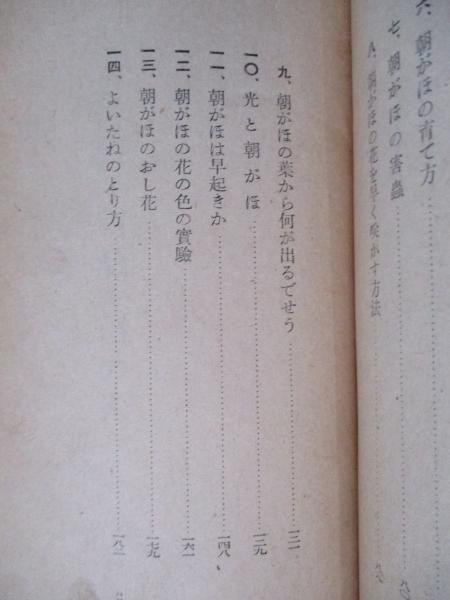 六、朝がほの育て方
七、朝がほの害蟲
八、朝がほの花を早く咲かす方法
九、朝がほの葉から何が出るでせう 一三一
一〇、光と朝がほ 一三九
一一、朝がほは早起きか 一四八
一二、朝がほの花の色の實驗 一六一
一三、朝がほのおし花 一七九
一四、よいたねのとり方 一八一